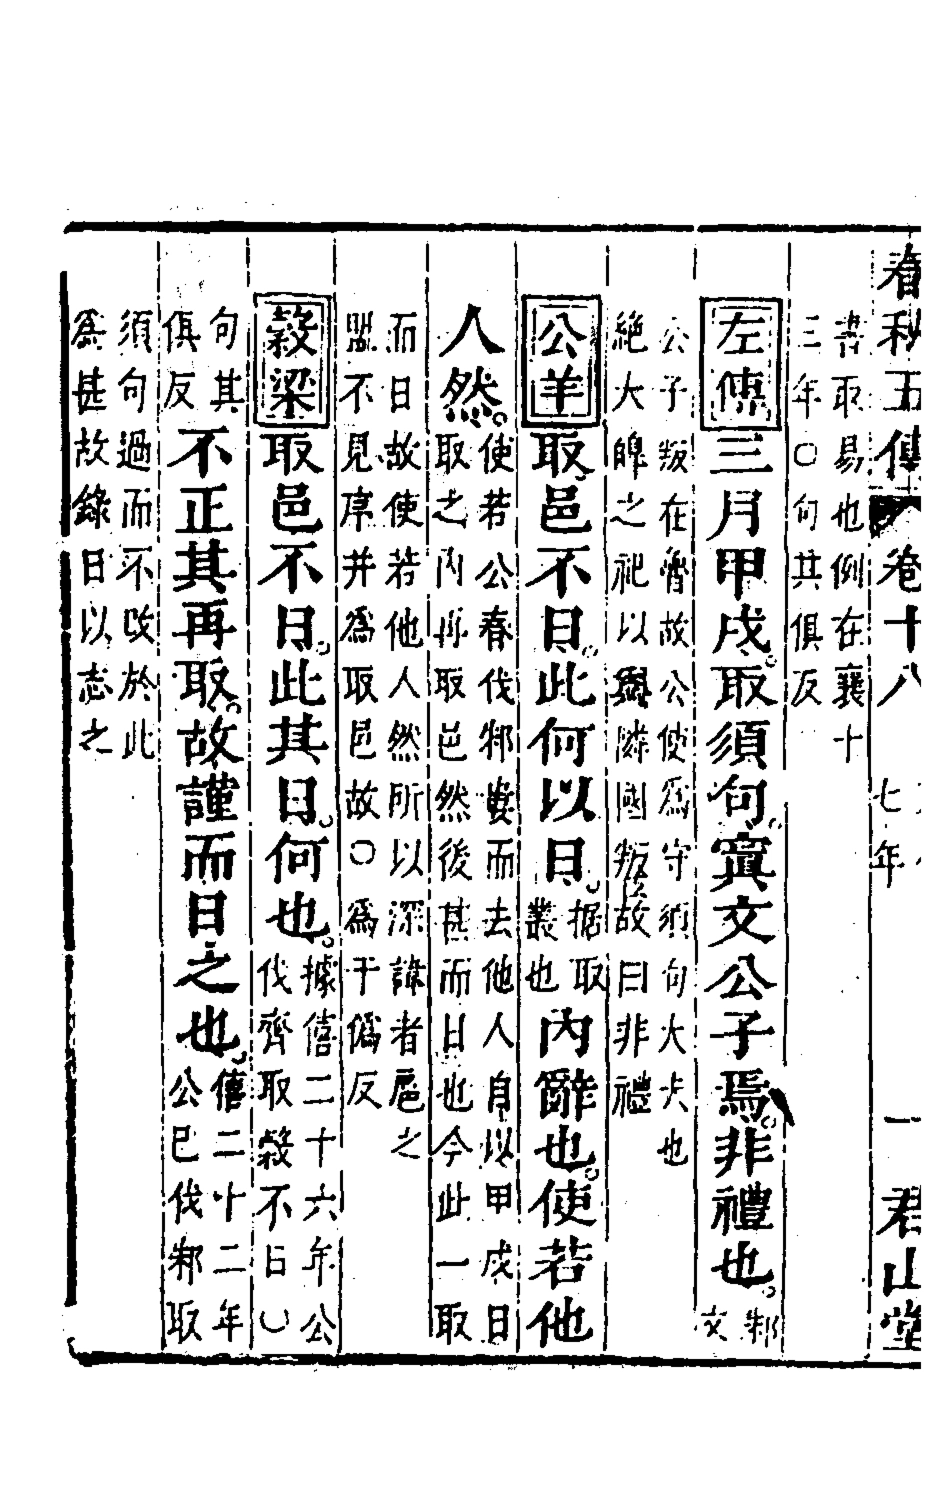 春秋五傳 卷十八 七年 一 君山堂
書取易也例在襄十
三年○句其俱反
左傳 三月甲戌取須句寘文公子焉非禮也 邾文
公子叛在魯故公使爲守須句大夫也
絶大皥之祀以與隣國叛故曰非禮
公羊 取邑不日此何以日 据取叢也 內辭也使若他
人然 使若公春伐邾婁而去他人自以甲戌日
取之内再取邑然後甚而日也今此一取
而日故使若他人然所以深諱者扈之
盟不見序并爲取邑故○爲于僞反
榖梁 取邑不日此其日何也 據僖二十六年公
伐齊取榖不日○
句其俱反 不正其再取故謹而日之也 僖二十二年
公已伐邾取
須句過而不改於此
爲甚故錄日以志之